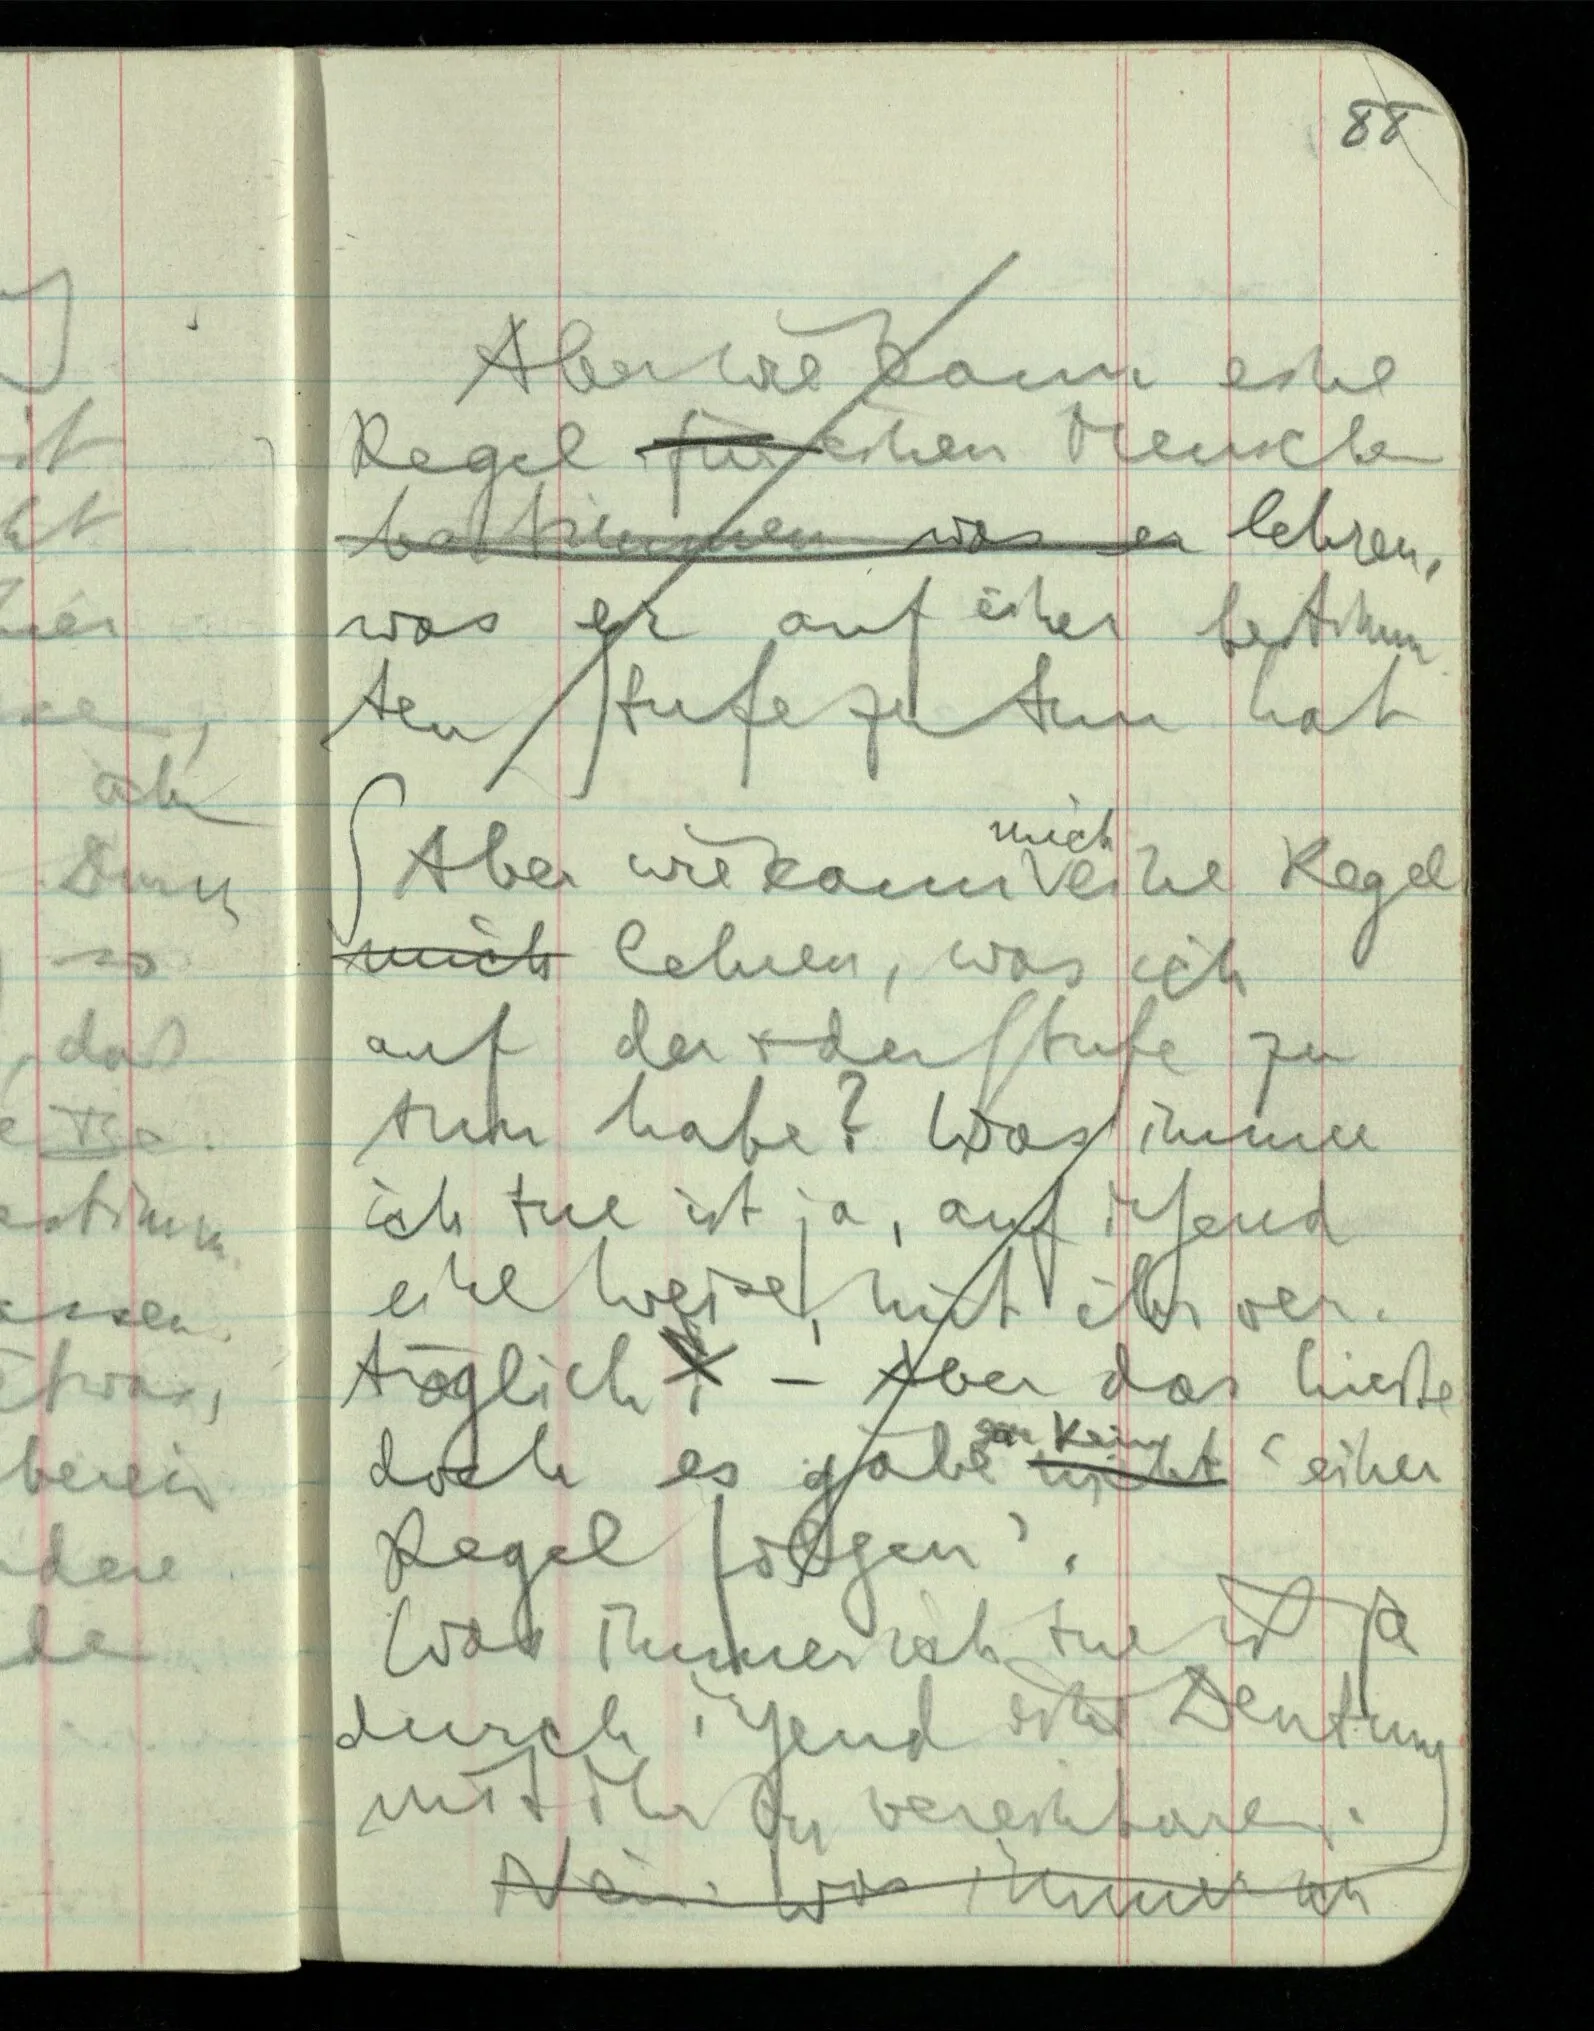 88
Aber wie kann eine
Regel für einen Menschen
bestimmen was er lehren,
was er auf einer bestimm
ten Stufe zu tun hat
Aber wie kann mich eine Regel
mich lehren, was ich
auf der & der Stufe zu
tun habe? Was immer
ich tue ist ja, auf irgend
eine Weise, mit ihr ver-
träglich. – Aber das hieße
doch es gäbe gar kein nicht ‘einer
Regel folgen’.
Was immer ich tue ist ja
durch irgend eine Deutung
mit ihr zu vereinbaren.
Nein. was immer ich
it
ich
Durch
so
, daß
estimm
assen.
etwas,
berein
dere
de